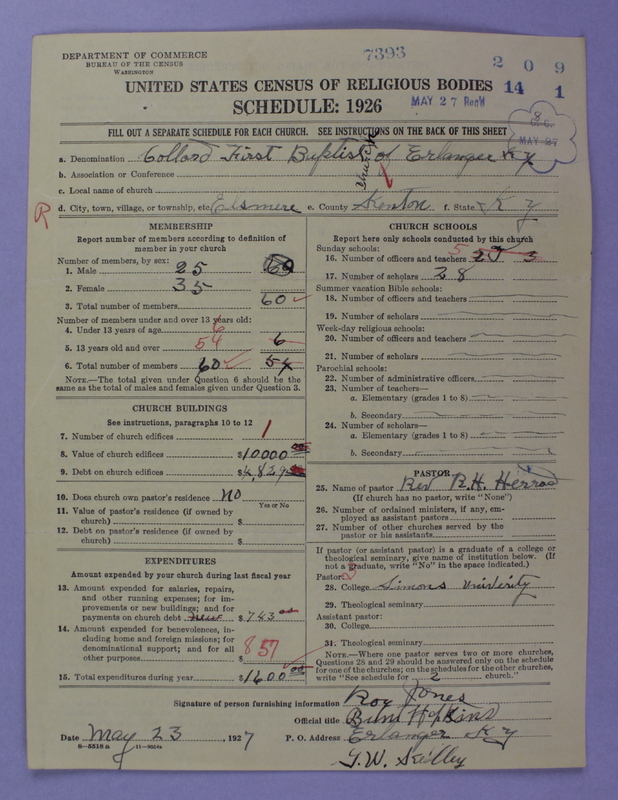 DEPARTMENT OF COMMERCE
BUREAU OF THE CENSUS
WASHINGTON
7393
2 0 9
14 1
UNITED STATES CENSUS OF RELIGIOUS BODIES
SCHEDULE: 1926
MAY 27 Rec'd
8
MAY 27
FILL OUT A SEPARATE SCHEDULE FOR EACH CHURCH. SEE INSTRUCTIONS ON THE BACK OF THIS SHEET
a. Denomination Collord First Baptist Church of Erlanger Ky
b. Association or Conference
c. Local name of church
R
d. City, town, village, or township, etc. Elsmere e. County Kenton f. State Ky
MEMBERSHIP
Report number of members according to definition of member in your church
Number of members, by sex:
1. Male 25
2. Female 35
3. Total number of members 60
Number of members under and over 13 years old:
4. Under 13 years of age 6
5. 13 years old and over 54 6
6. Total number of members 60 54
NOTE.—The total given under Question 6 should be the
same as the total of males and females given under Question 3.
CHURCH BUILDINGS
See instructions, paragraphs 10 to 12
7. Number of church edifices 1
8. Value of church edifices $10000 00
9. Debt on church edifices $4,829
10. Does church own pastor's residence No
Yes or No
11. Value of pastor's residence (if owned by
church) $
12. Debt on pastor's residence (if owned by
church) $
EXPENDITURES
Amount expended by your church during last fiscal year
13. Amount expended for salaries, repairs,
and other running expenses; for im-
provements or new buildings; and for
payments on church debt $743 00
14. Amount expended for benevolences, in-
cluding home and foreign missions; for
denominational support; and for all
other purposes $ 857
15. Total expenditures during year $1600 00
CHURCH SCHOOLS
Report here only schools conducted by this church
Sunday schools:
16. Number of officers and teachers 5 3
17. Number of scholars 28
Summer vacation Bible schools:
18. Number of officers and teachers
19. Number of scholars
Week-day religious schools:
20. Number of officers and teachers
21. Number of scholars
Parochial schools:
22. Number of administrative officers
23. Number of teachers—
a. Elementary (grades 1 to 8)
b. Secondary
24. Number of scholars—
a. Elementary (grades 1 to 8)
b. Secondary
PASTOR
25. Name of pastor Rev R.H.
(If church has no pastor, write "None")
26. Number of ordained ministers, if any, em-
ployed as assistant pastors
27. Number of other churches served by the
pastor or his assistants
If pastor (or assistant pastor) is a graduate of a college or
theological seminary, give name of institution below. (If
not a graduate, write "No" in the space indicated.)
Pastor:
28. College Simons Univerity
29. Theological seminary
Assistant pastor:
30. College
31. Theological seminary
NOTE.—Where one pastor serves two or more churches,
Questions 28 and 29 should be answered only on the schedule
for one of the churches; on the schedules for the other churches,
write "See schedule for 2 church."
Signature of person furnishing information Roy Jones
Official title Hopkins
Date May 23, 1927 P. O. Address Erlanger Ky
8-5518 a
G.W.